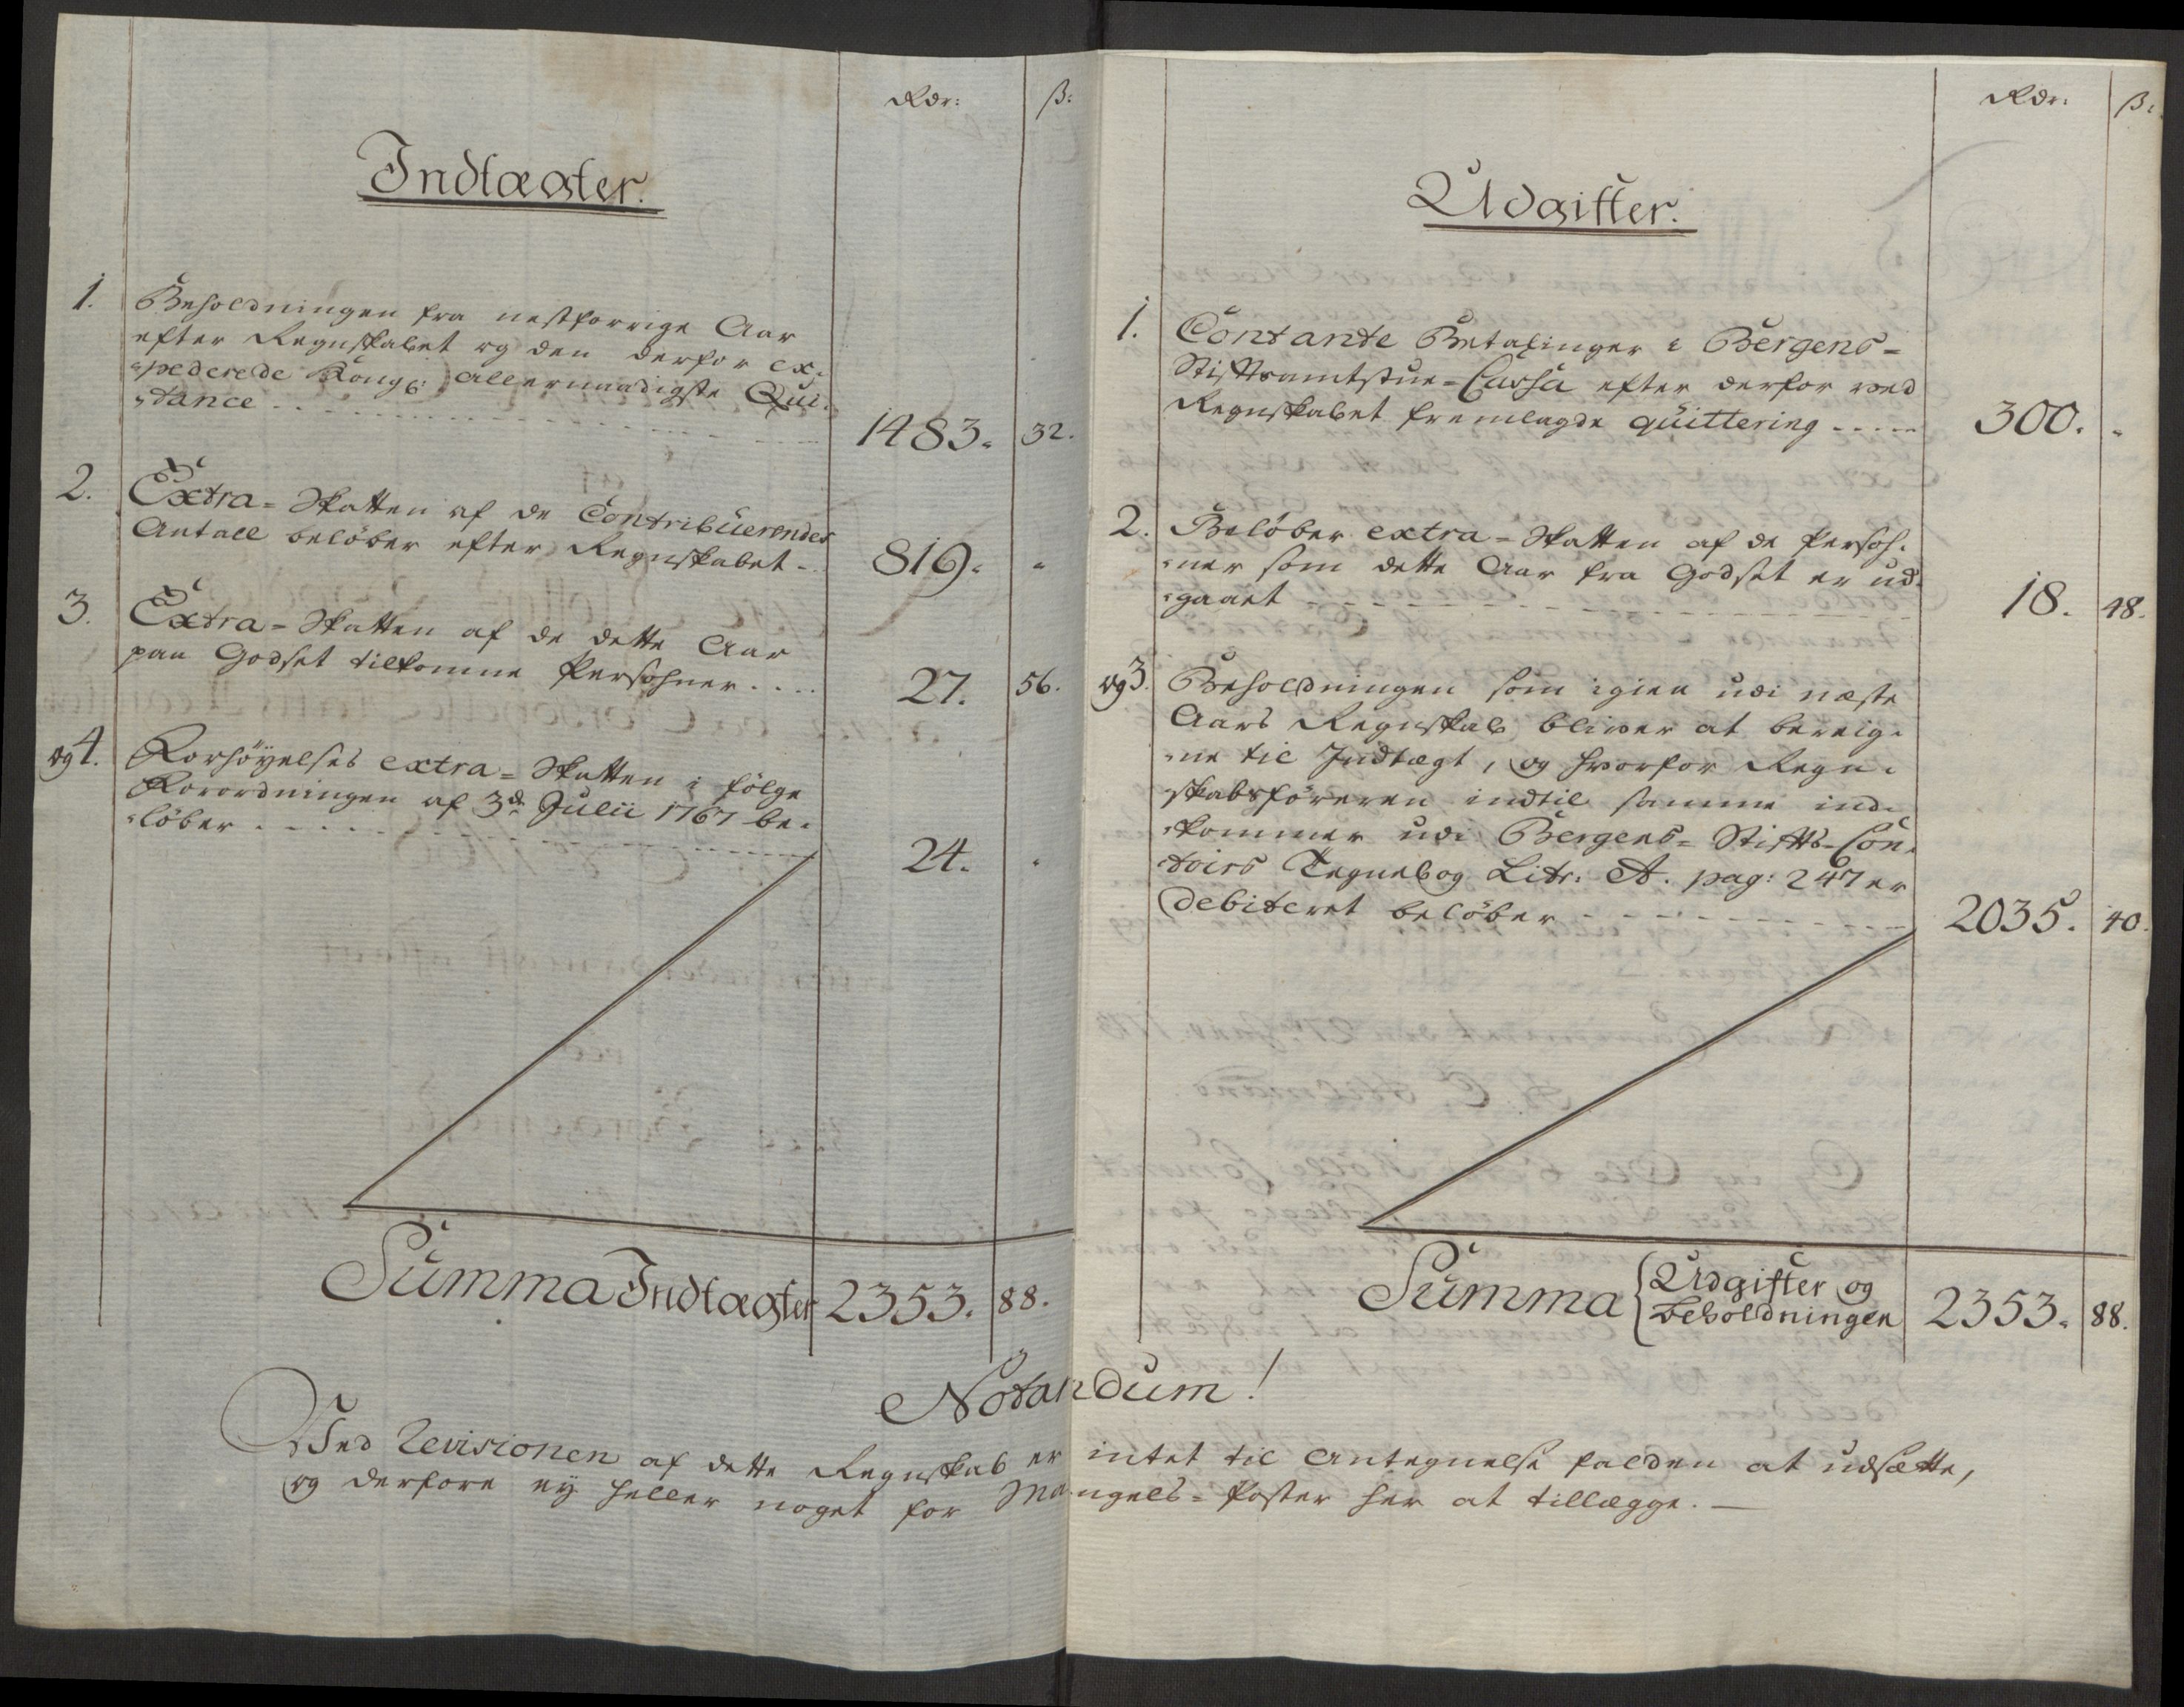 Rdr: ß:
Indtægter.
1. Beholdningen fra nestforrige Aar
efter Regnskabet og den derfor ex-
-pederede Kongl: allernaadigste Qui-
-tance 1483. 32.
2. Extra-Skatten af de Contribuerendes
Antall beløber efter Regnskabet 819. -
3. Extra-Skatten af de dette Aar
paa Godset tilkomne Persohner 27. 56.
og 4. Forhøyelses extra-Skatten i følge
Forordningen af 3de Julii 1767 be-
-løber 24. -
Summa Indtægter 2353. 88.
Rdr: ß:
Udgifter.
1. Contante Betalinger i Bergens-
Stiftsamtstue-Cassa efter derfor ved
Regnskabet fremlagde quittering 300. -
2. Beløber extra-Skatten af de Persoh-
-ner som dette Aar fra Godset er ud-
-gaaet 18. 48.
og 3. Beholdningen som igien udi næste
Aars Regnskab bliver at bereig-
-ne til Indtægt, og hvorfor Regn-
-skabsføreren indtil samme ind-
-kommer udi Bergens-Stifts-Con-
-toirs Tegnebog Litr: A. pag: 247 er
debiteret beløber 2035. 40.
Summa { Udgifter og
Beholdningen 2353. 88.
Notandum!
Ved Revisionen af dette Regnskab er intet til Antegnelse falden at udsætte,
og derfore ey heller noget for Mangels-Poster her at tillægge.